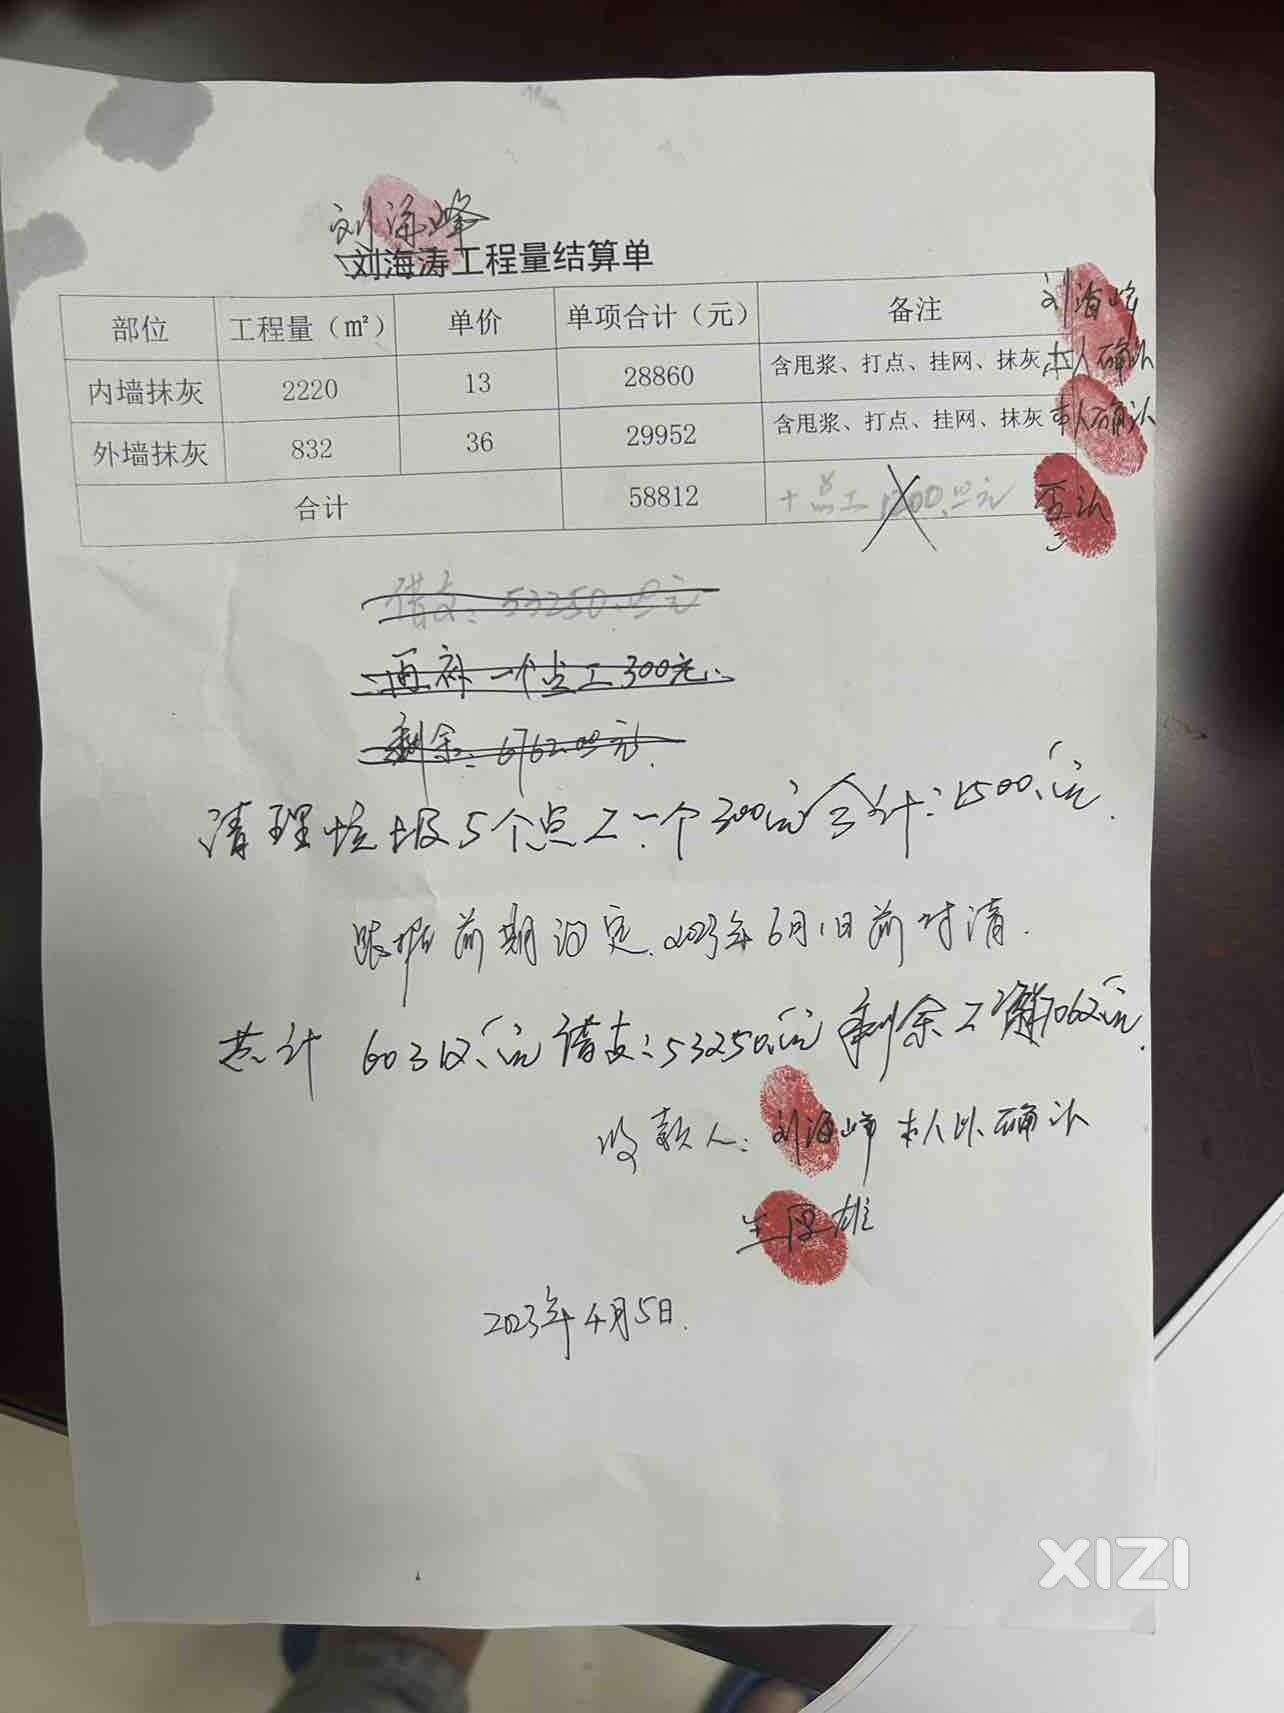 刘海峰
刘海涛工程量结算单
部位 工程量（㎡） 单价 单项合计（元） 备注 刘海峰
内墙抹灰 2220 13 28860 含甩浆、打点、挂网、抹灰 本人确认
外墙抹灰 832 36 29952 含甩浆、打点、挂网、抹灰 本人确认
合计 58812 +点工1200.00元
借支：53250.00元
再补一个点工300元.
剩余：6762.00元.
清理垃圾5个点工.一个300元合计：1500元.
跟据前期约定.2023年6月1日前付清.
共计60312元借支：53250元剩余工资7062元.
收款人：刘海峰 本人以确认
2023年4月5日.
XIZI